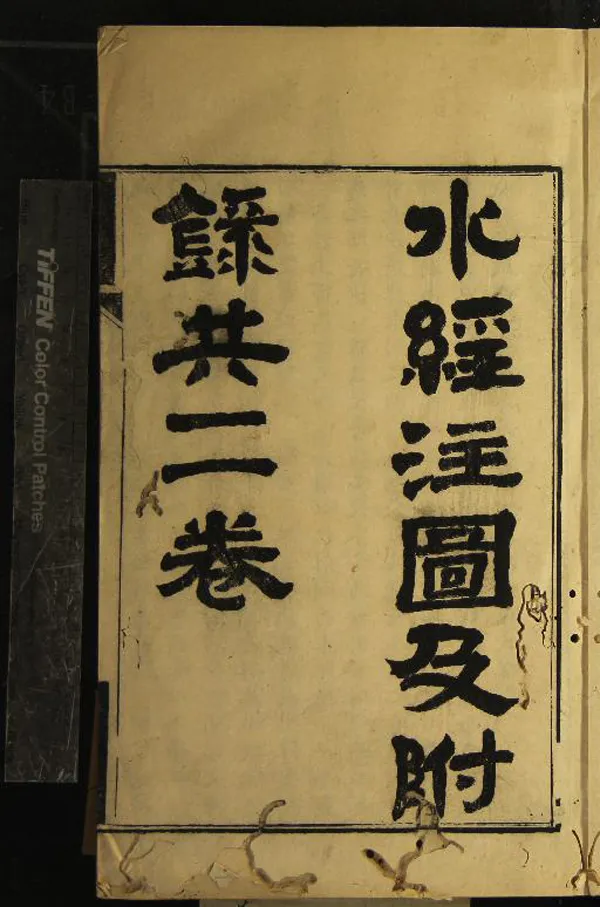 水經注圖及附
錄共二卷
TIFFEN Color Control Patches